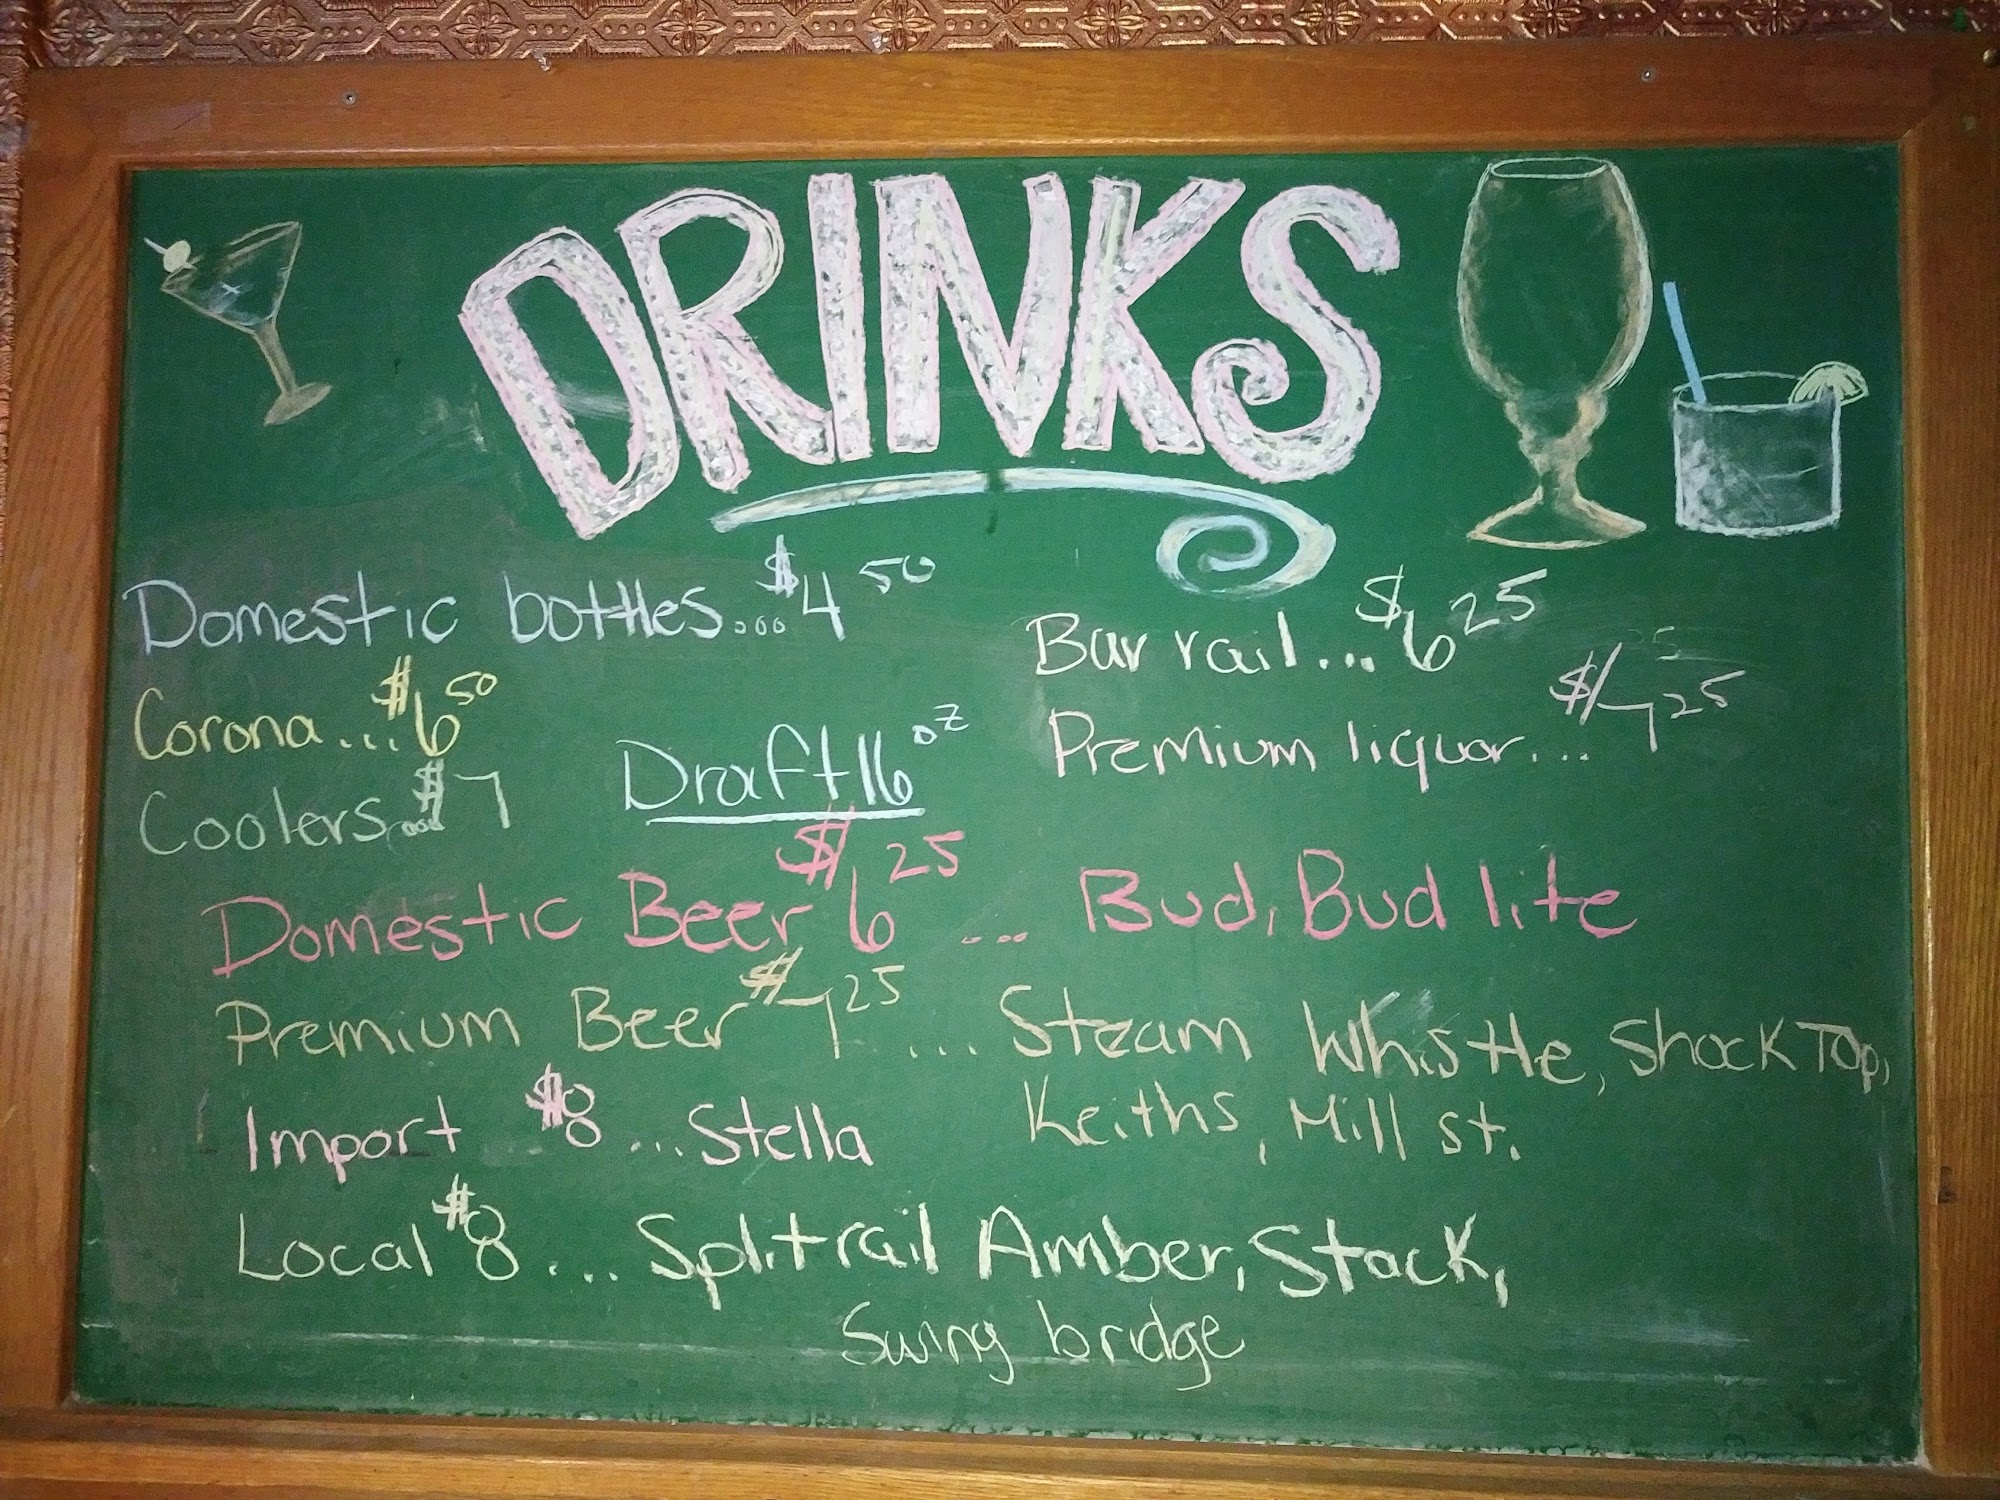 DRINKS
Domestic bottles....$4 50
Corona...$6 50
Coolers....$7
Bar rail...$6 25
Premium liquor...$7 25
Draft 16 oz
Domestic Beer $6 25 ... Bud, Bud lite
Premium Beer $7 25 ... Steam Whistle, Shock Top,
Keiths, Mill st.
Import $8 ...Stella
Local $8 ... Splitrail Amber, Stack,
Swing bridge